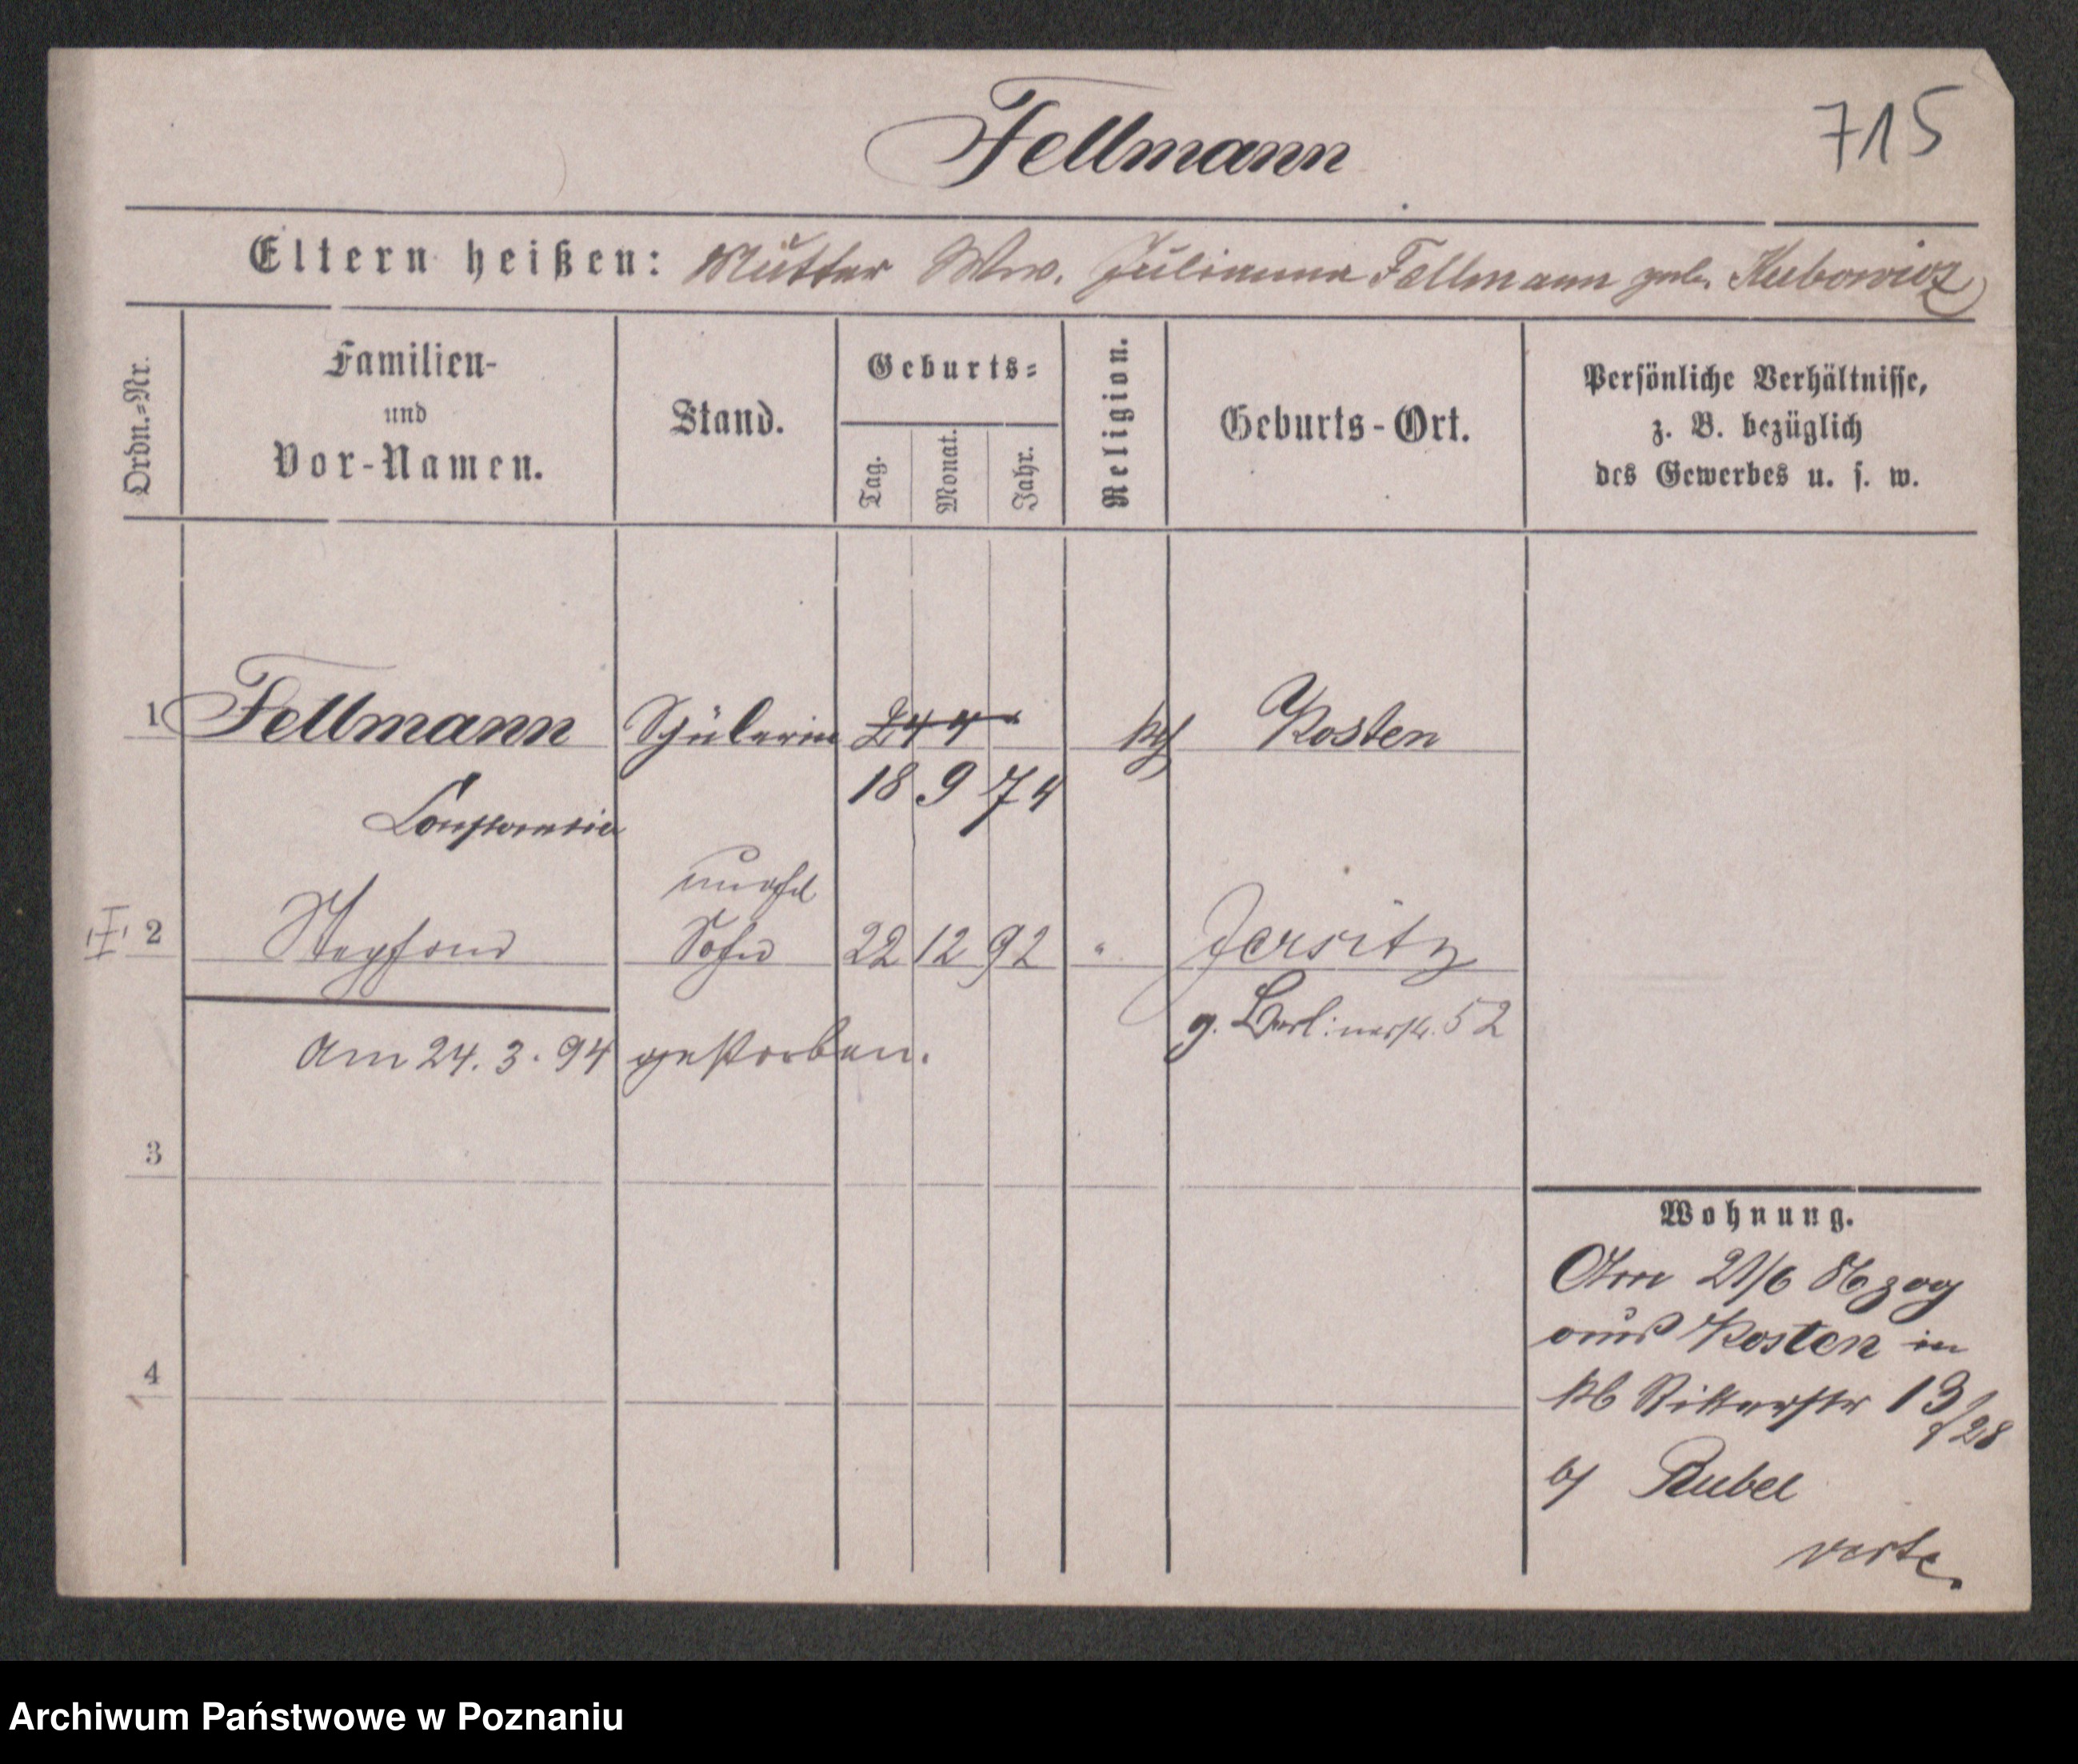 Fellmann
715
Eltern heißen: Mutter Wwe. Julianna Fellmann geb. Kubowicz
Ordn.=Nr.
Familien-
und
Vor-Namen.
Stand.
Geburts=
Tag.
Monat.
Jahr.
Religion.
Geburts-Ort.
Persönliche Verhältnisse,
z. B. bezüglich
des Gewerbes u. s. w.
1 Fellmann Schülerin kth Kosten
18 9 74
Constantia
unehel
2 Stephan Sohn 22 12 92 " Jersitz
g. Berlinerstr. 52
am 24. 3. 94 gestorben.
3
Wohnung.
Am 21/6 86 zog
aus Kosten in
4
kl Ritterstr 13/28
b/ Rubel
verte.
Archiwum Państwowe w Poznaniu